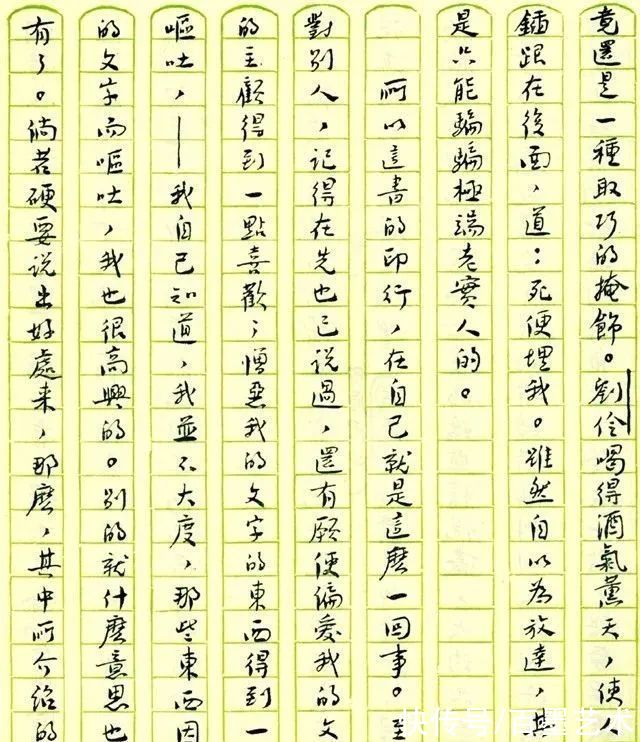 竟還是一種取巧的掩飾。劉伶喝得酒氣薰天,使人
鍤跟在後面,道:死便埋我。雖然自以為放達,其
是只能騙騙極端老實人的。
所以這書的印行,在自己就是這麼一回事。至
對別人,記得在先也已說過,還有願使偏愛我的文
的主顧得到一點喜歡;憎惡我的文字的東西得到一
嘔吐,——我自己知道,我並不大度,那些東西因
的文字而嘔吐,我也很高興的。別的就什麼意思也
有了。倘若硬要说出好處来,那麼,其中所介紹的
快传号/百墨艺术